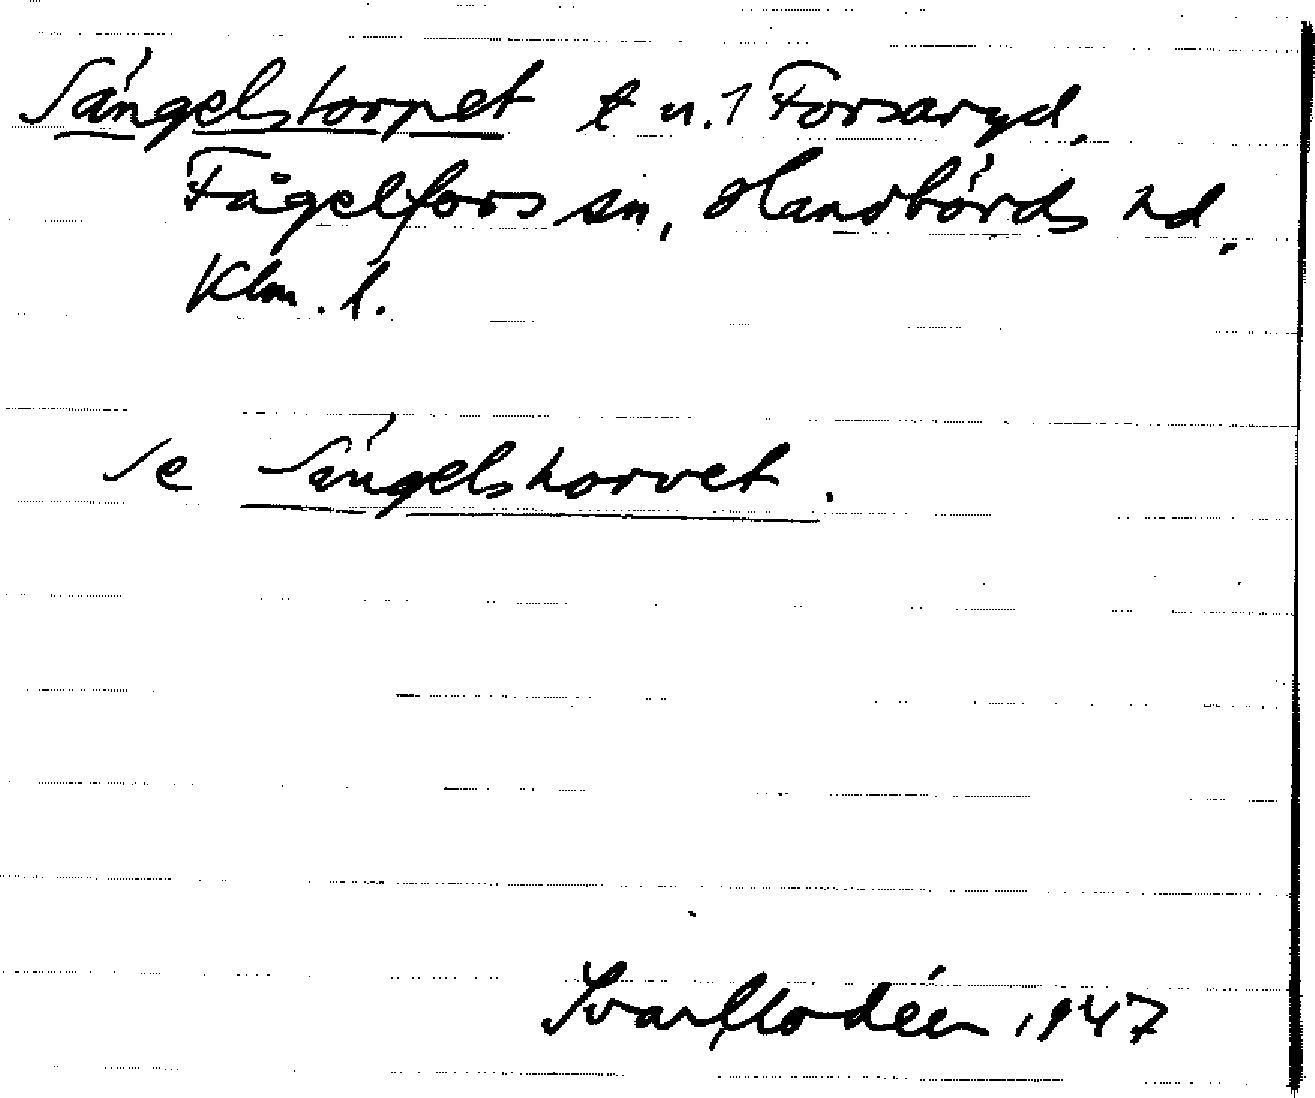 Sängelstorpet t u. 1 Forsaryd,
Fågelfors sn, Handbörds hd,
Klm. l.
Se Sängelshorvet.
Ivar Modéer 1947